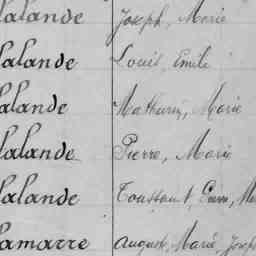 Lalande Joseph, Marie
Lalande Louis, Emile
Lalande Mathurin, Marie
Lalande Pierre, Marie
Lalande Toussaint,
Lamarre August, Marie, Joseph